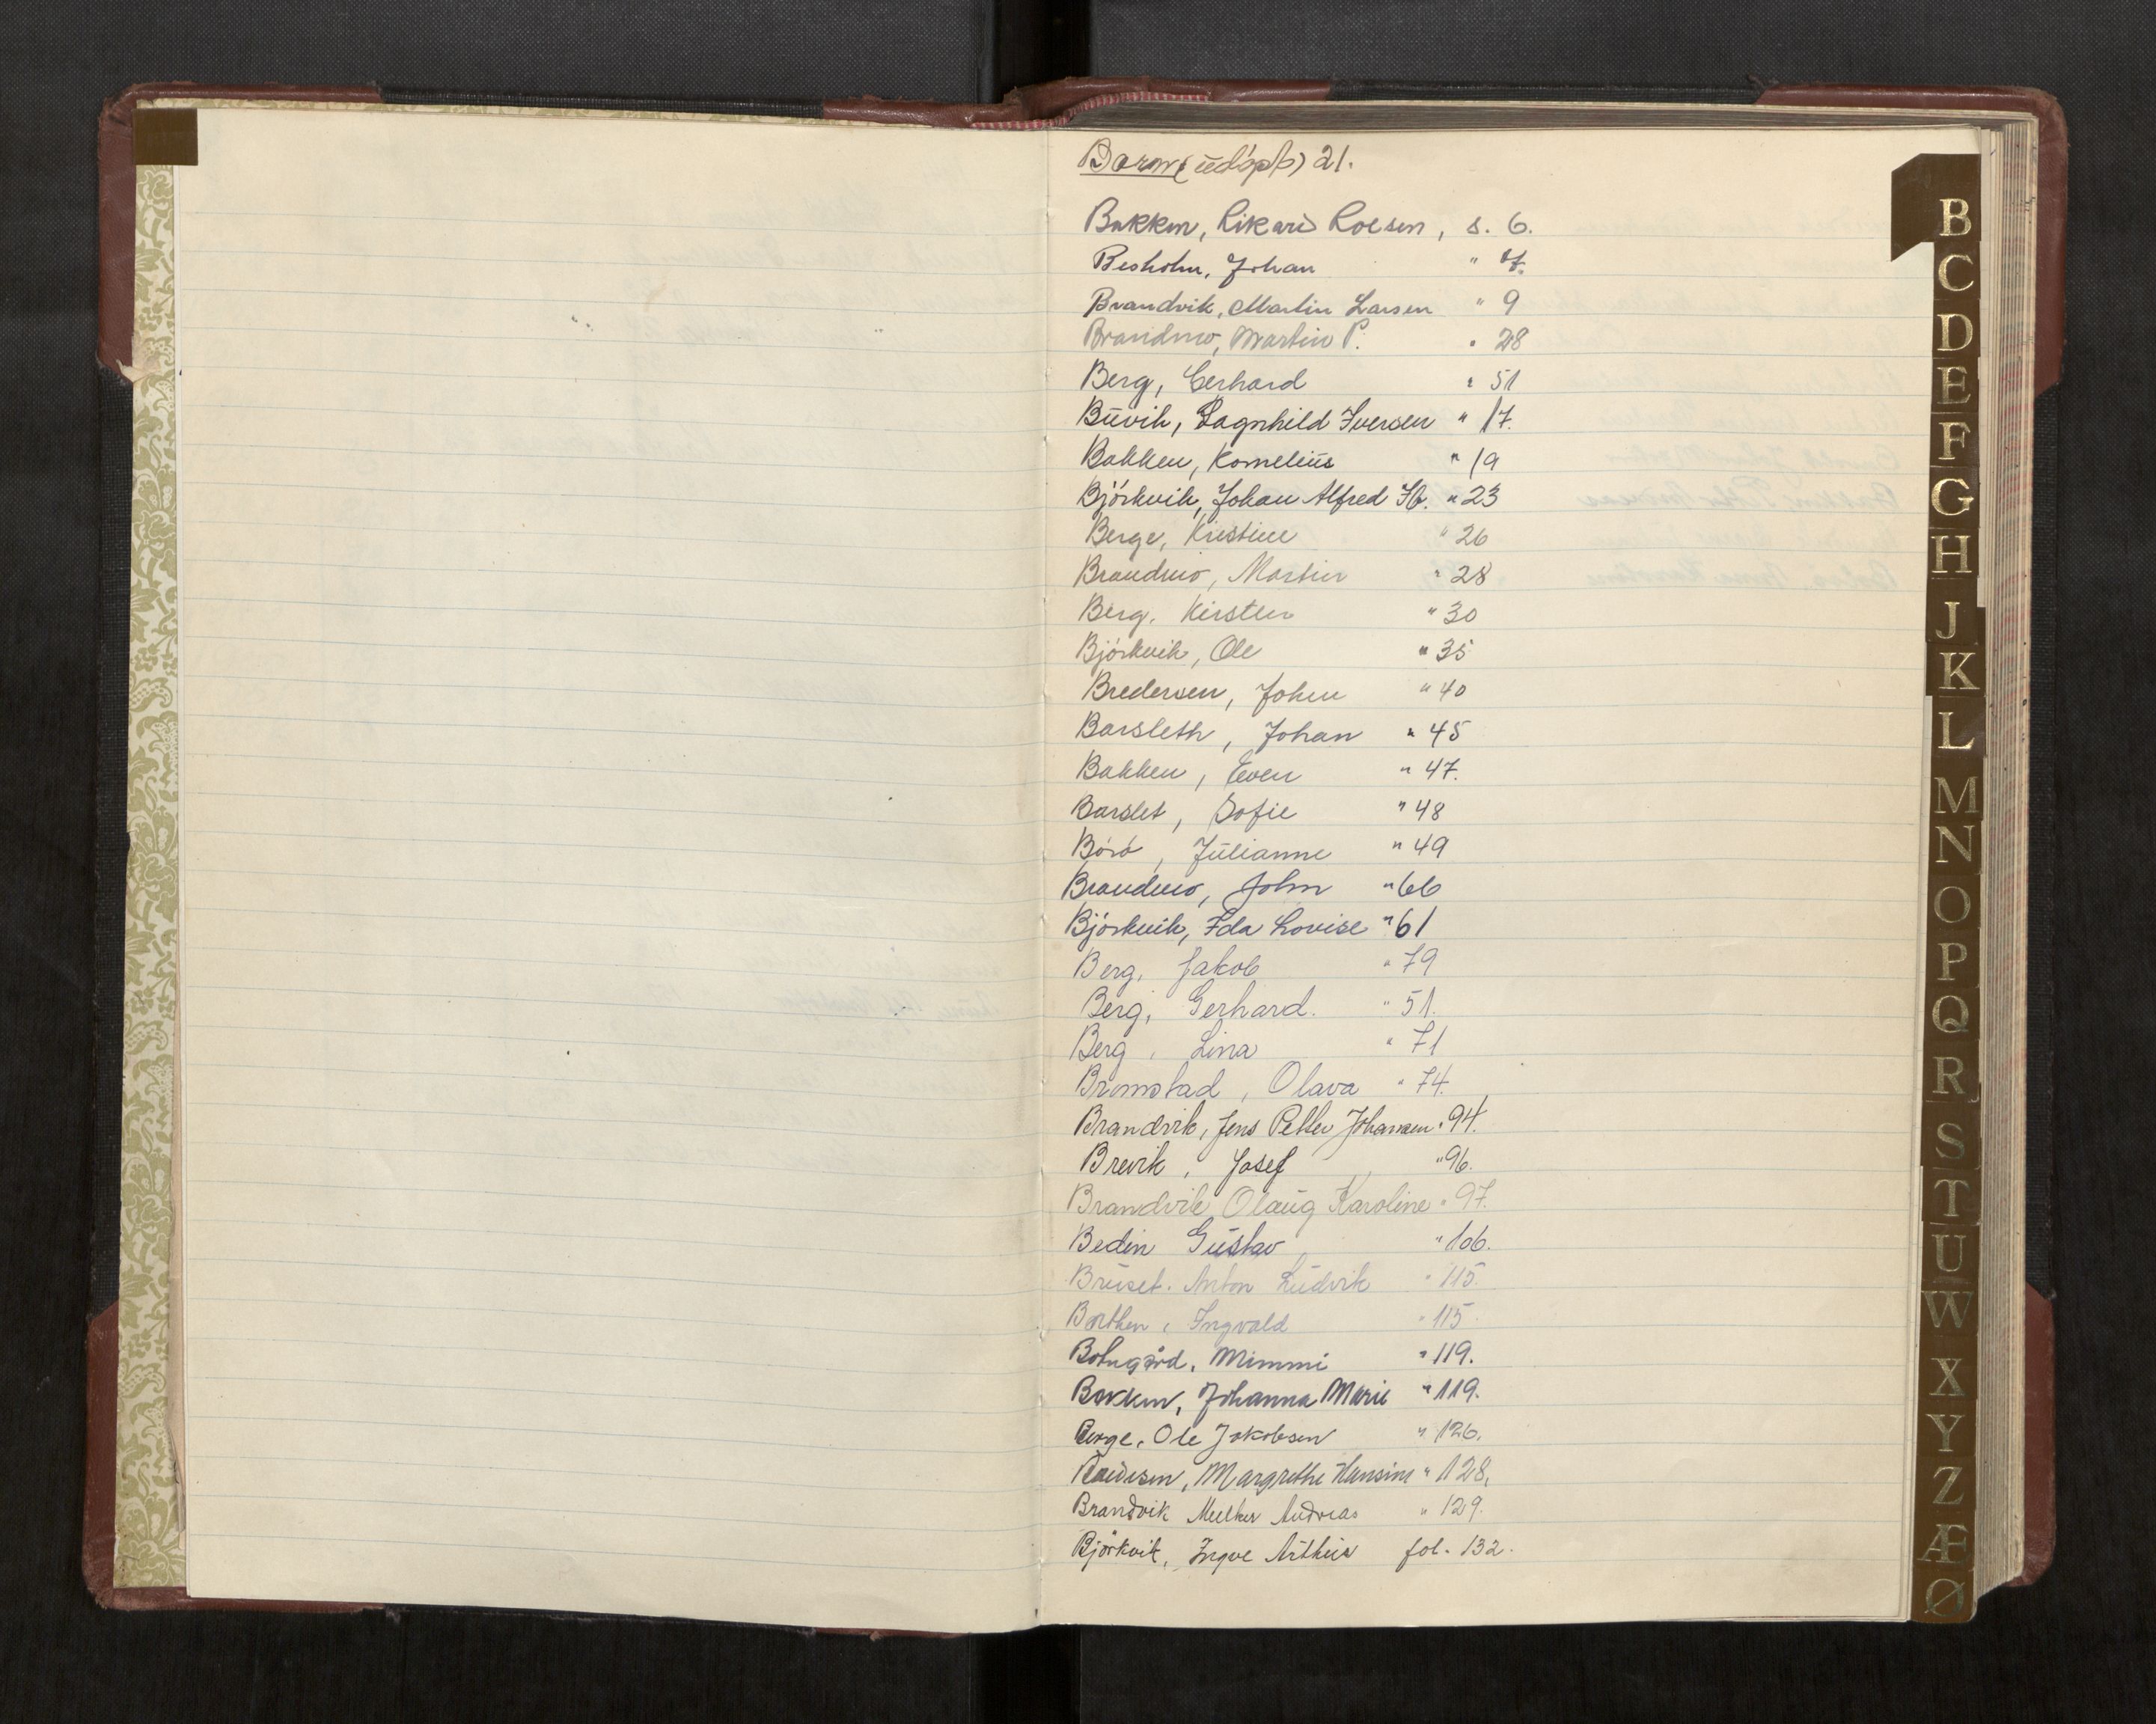 Barn (udöpt) 21.
Bakken, Rikard Roesen, s. 6.
Besholm, Johan " 7.
Brandvik, Martin Larsen " 9
Brandmo, Martin P. " 28
Berg, Gerhard " 51
Buvik, Ragnhild Iversen " 17.
Bakken, Kornelius " 19
Björkvik, Johan Alfred " 23
Berge, Kristine " 26
Brandmo, Martin " 28
Berg, Kirsten " 30
Björkvik, Ole " 35
Bredersen, Johan " 40
Barsleth, Johan " 45
Bakken, Even " 47.
Barslet, Sofie " 48
Börö, Julianne " 49
Brandmo, John " 66
Björkvik, Ida Lovise " 61
Berg, Jakob " 79
Berg, Gerhard. " 51.
Berg, Lina " 71
Bromstad, Olava " 74.
Brandvik, Jens Petter Johansen " 94.
Brevik, Josef " 96.
Brandvik Olaug Karoline " 97.
Bedin Gustav " 106.
Bruset. Anton Ludvik " 115
Borthen, Ingvald " 115
Bohngård, Mimmi " 119.
Bakken, Johanna Marie " 119.
Berge, Ole Jakobsen " 126.
Margrethe Hansine " 128,
Brandvik Melker Andreas " 129.
Björkvik, Ingve Arthur fol. 132.
B
C
D
E
F
G
H
J
K
L
M
N
O
P
Q
R
S
T
U
W
X
Y
Z
Æ
Ø